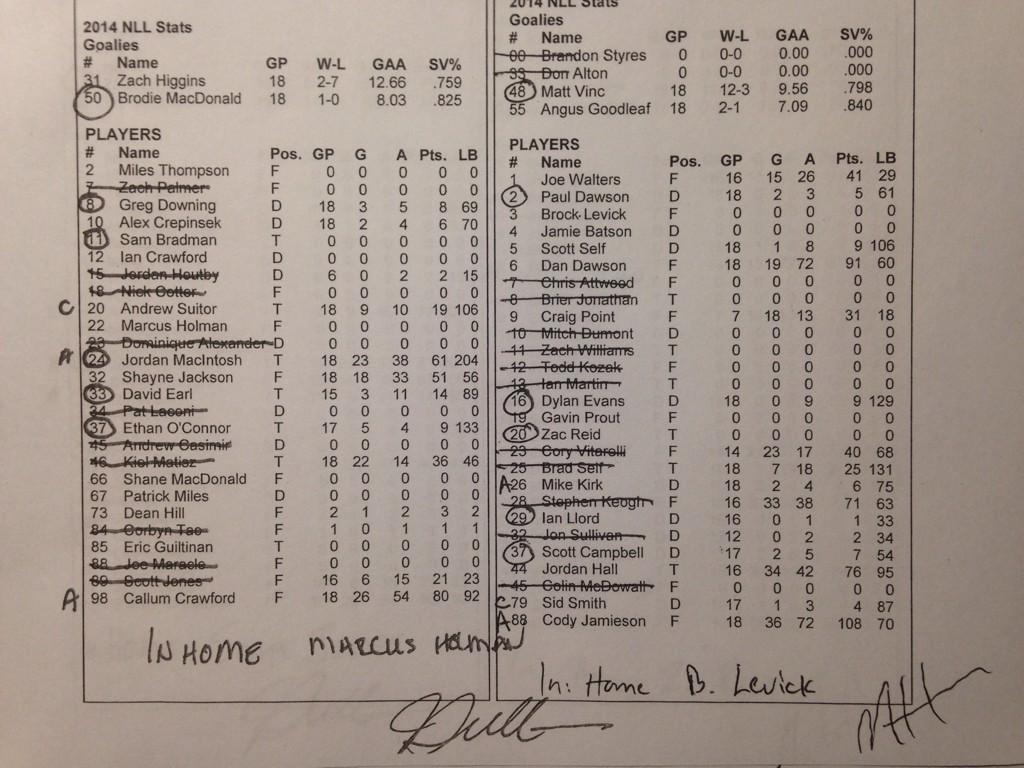 2014 NLL Stats
Goalies
# Name GP W-L GAA SV%
31 Zach Higgins 18 2-7 12.66 .759
50 Brodie MacDonald 18 1-0 8.03 .825
PLAYERS
# Name Pos. GP G A Pts. LB
2 Miles Thompson F 0 0 0 0 0
7 Zach Palmer F 0 0 0 0 0
8 Greg Downing D 18 3 5 8 69
10 Alex Crepinsek D 18 2 4 6 70
11 Sam Bradman T 0 0 0 0 0
12 Ian Crawford D 0 0 0 0 0
15 Jordan Houtby D 6 0 2 2 15
18 Nick Cotter F 0 0 0 0 0
C 20 Andrew Suitor T 18 9 10 19 106
22 Marcus Holman F 0 0 0 0 0
23 Dominique Alexander D 0 0 0 0 0
A 24 Jordan MacIntosh T 18 23 38 61 204
32 Shayne Jackson F 18 18 33 51 56
33 David Earl T 15 3 11 14 89
34 Pat Laconi D 0 0 0 0 0
37 Ethan O'Connor T 17 5 4 9 133
45 Andrew Casimir D 0 0 0 0 0
46 Kiel Matisz T 18 22 14 36 46
66 Shane MacDonald F 0 0 0 0 0
67 Patrick Miles D 0 0 0 0 0
73 Dean Hill F 2 1 2 3 2
84 Corbyn Tao F 1 0 1 1 1
85 Eric Guiltinan T 0 0 0 0 0
88 Joe Maracle F 0 0 0 0 0
89 Scott Jones F 16 6 15 21 23
A 98 Callum Crawford F 18 26 54 80 92
IN HOME MARCUS HOLMAN
2014 NLL Stats
Goalies
# Name GP W-L GAA SV%
00 Brandon Styres 0 0-0 0.00 .000
33 Don Alton 0 0-0 0.00 .000
48 Matt Vinc 18 12-3 9.56 .798
55 Angus Goodleaf 18 2-1 7.09 .840
PLAYERS
# Name Pos. GP G A Pts. LB
1 Joe Walters F 16 15 26 41 29
2 Paul Dawson D 18 2 3 5 61
3 Brock Levick F 0 0 0 0 0
4 Jamie Batson D 0 0 0 0 0
5 Scott Self D 18 1 8 9 106
6 Dan Dawson F 18 19 72 91 60
7 Chris Attwood F 0 0 0 0 0
8 Brier Jonathan T 0 0 0 0 0
9 Craig Point F 7 18 13 31 18
10 Mitch Dumont D 0 0 0 0 0
11 Zach Williams T 0 0 0 0 0
12 Todd Kozak F 0 0 0 0 0
13 Ian Martin T 0 0 0 0 0
16 Dylan Evans D 18 0 9 9 129
19 Gavin Prout F 0 0 0 0 0
20 Zac Reid T 0 0 0 0 0
23 Cory Vitarelli F 14 23 17 40 68
25 Brad Self T 18 7 18 25 131
A 26 Mike Kirk D 18 2 4 6 75
28 Stephen Keogh F 16 33 38 71 63
29 Ian Llord D 16 0 1 1 33
32 Jon Sullivan D 12 0 2 2 34
37 Scott Campbell D 17 2 5 7 54
44 Jordan Hall T 16 34 42 76 95
45 Colin McDowall F 0 0 0 0 0
C 79 Sid Smith D 17 1 3 4 87
A 88 Cody Jamieson F 18 36 72 108 70
In: Home B. Levick